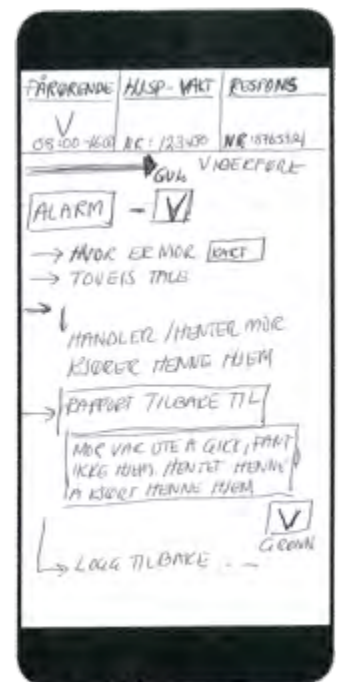 PÅRØRENDE
HUSP-VAKT
RESPONS
V
08:00-1600
NR: 123450
NR
GUL
VIDEREFØRE
ALARM - V
→ HVOR ER MOR KART
→ TOVEIS TALE
→
HANDLER / HENTER MOR
KJØRER HENNE HJEM
→ RAPPORT TILBAKE TIL
MOR VAR UTE Å GIKK, FANT
IKKE HJEM. HENTET HENNE
Å KJØRT HENNE HJEM
V
GRØNN
→ LOGG TILBAKE . _